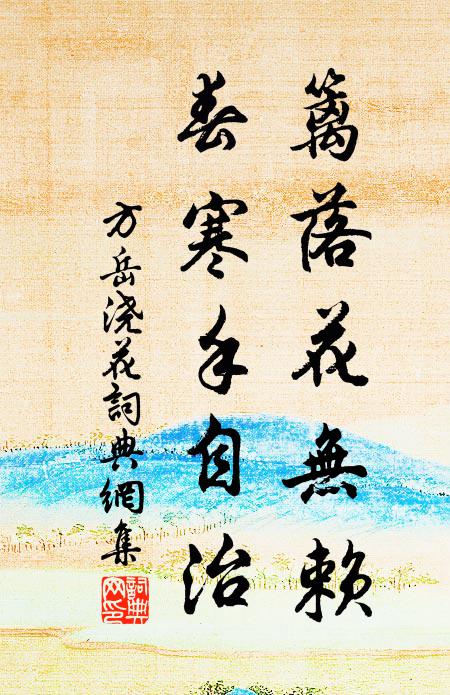 籬落花無賴
春寒手自治
方岳浇花詞典網集
詞典網印